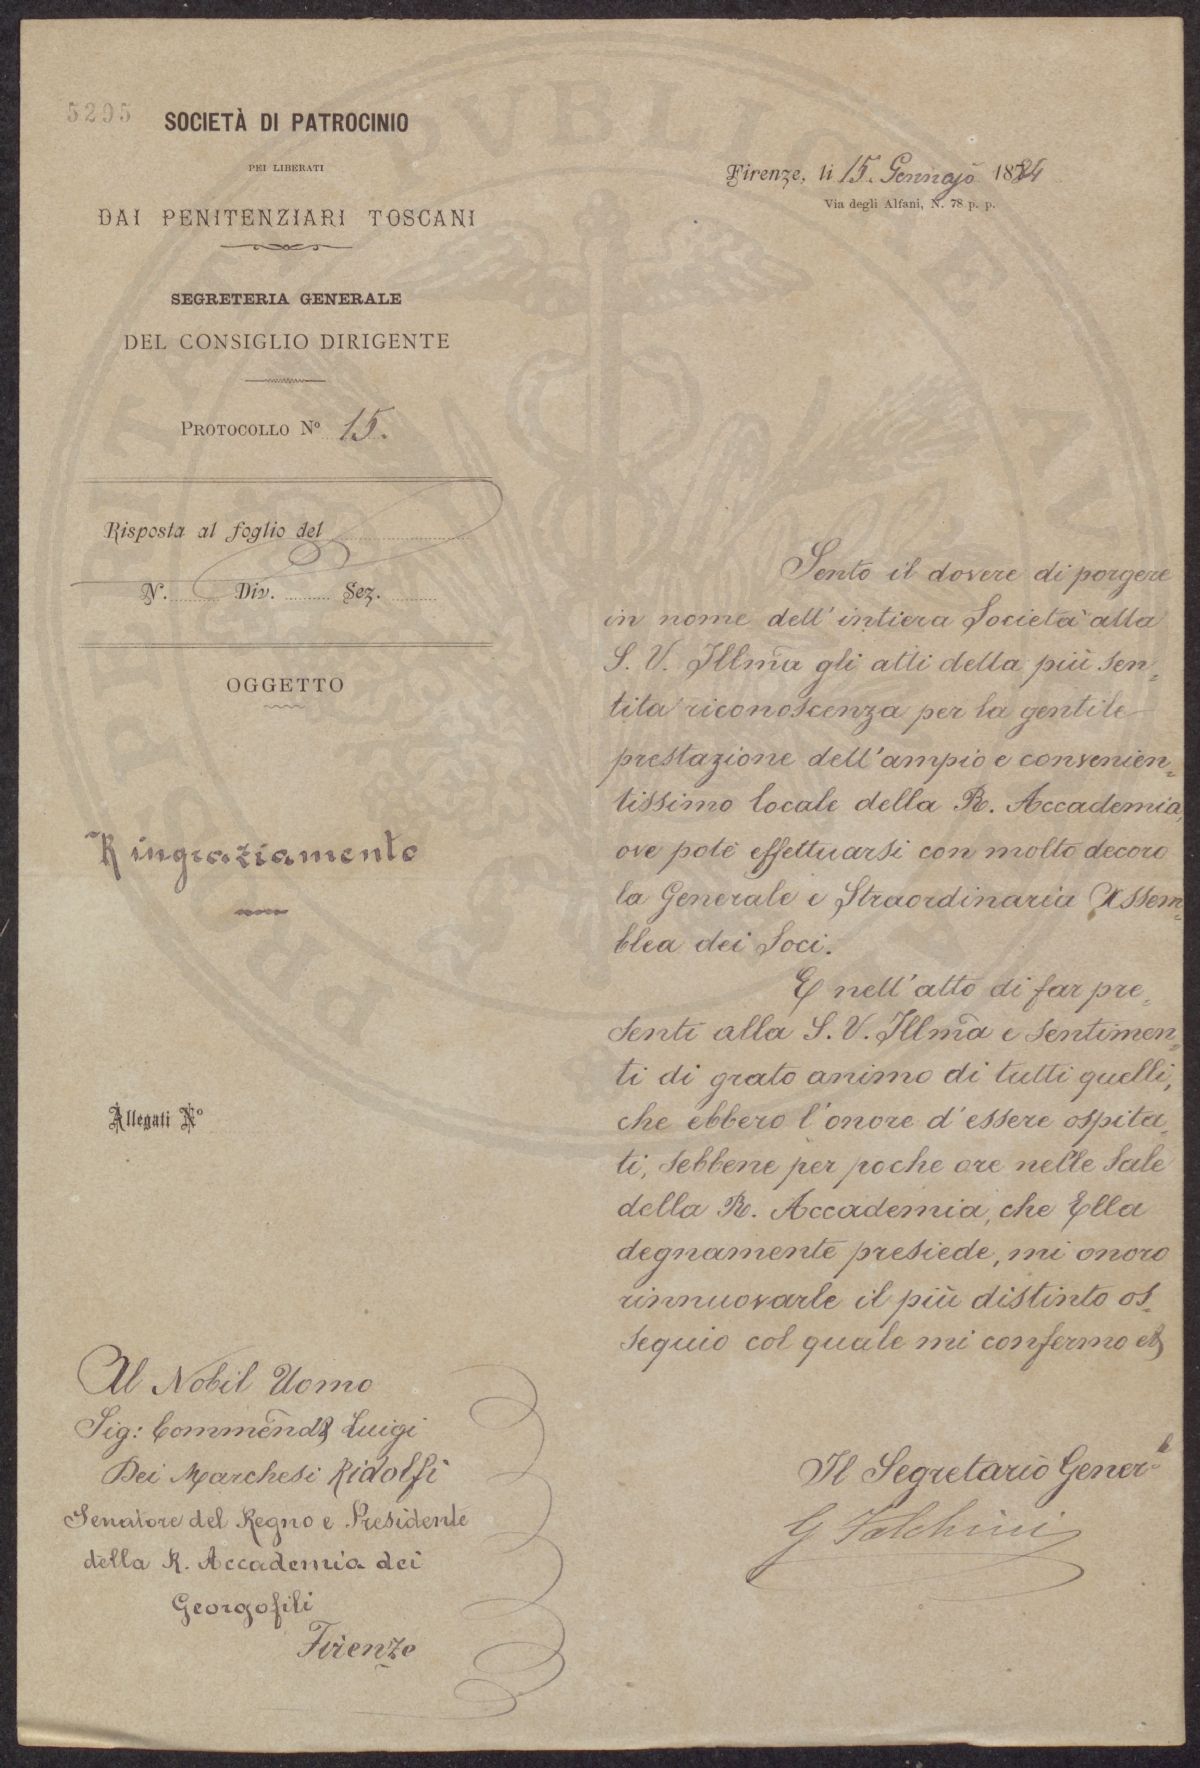 5295
SOCIETÀ DI PATROCINIO
PEI LIBERATI
DAI PENITENZIARI TOSCANI
SEGRETERIA GENERALE
DEL CONSIGLIO DIRIGENTE
PROTOCOLLO Nº 15.
Risposta al foglio del
N. Div. Sez.
OGGETTO
Ringraziamento
Allegati Nº
Al Nobil Uomo
Sig: Commend Luigi
Dei Marchesi Ridolfi
Senatore del Regno e Presidente
della R. Accademia dei
Georgofili
Firenze
Firenze, li 15. Gennajo 1884
Via degli Alfani, N. 78 p. p.
Sento il dovere di porgere
in nome dell'intiera Società alla
S. V. Illma gli atti della più sen=
tita riconoscenza per la gentile
prestazione dell'ampio e convenien=
tissimo locale della R. Accademia,
ove potè effettuarsi con molto decoro
la Generale e Straordinaria Assem=
blea dei Soci.
E nell'atto di far pre=
senti alla S. V. Illma e sentimen=
ti di grato animo di tutti quelli,
che ebbero l'onore d'essere ospita=
ti, sebbene per poche ore nelle Sale
della R. Accademia, che Ella
degnamente presiede, mi onoro
rinnuovarle il più distinto os=
sequio col quale mi confermo
Il Segretario Gener.le
G Falchini